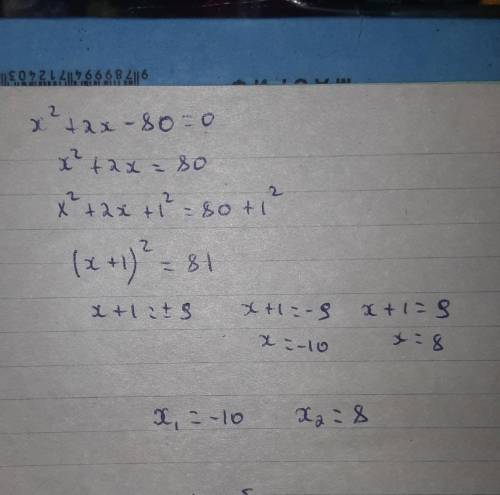 x² + 2x - 80 = 0
x² + 2x = 80
x² + 2x + 1² = 80 + 1²
(x + 1)² = 81
x + 1 = ± 9 x + 1 = -9 x + 1 = 9
x = -10 x = 8
x₁ = -10 x₂ = 8